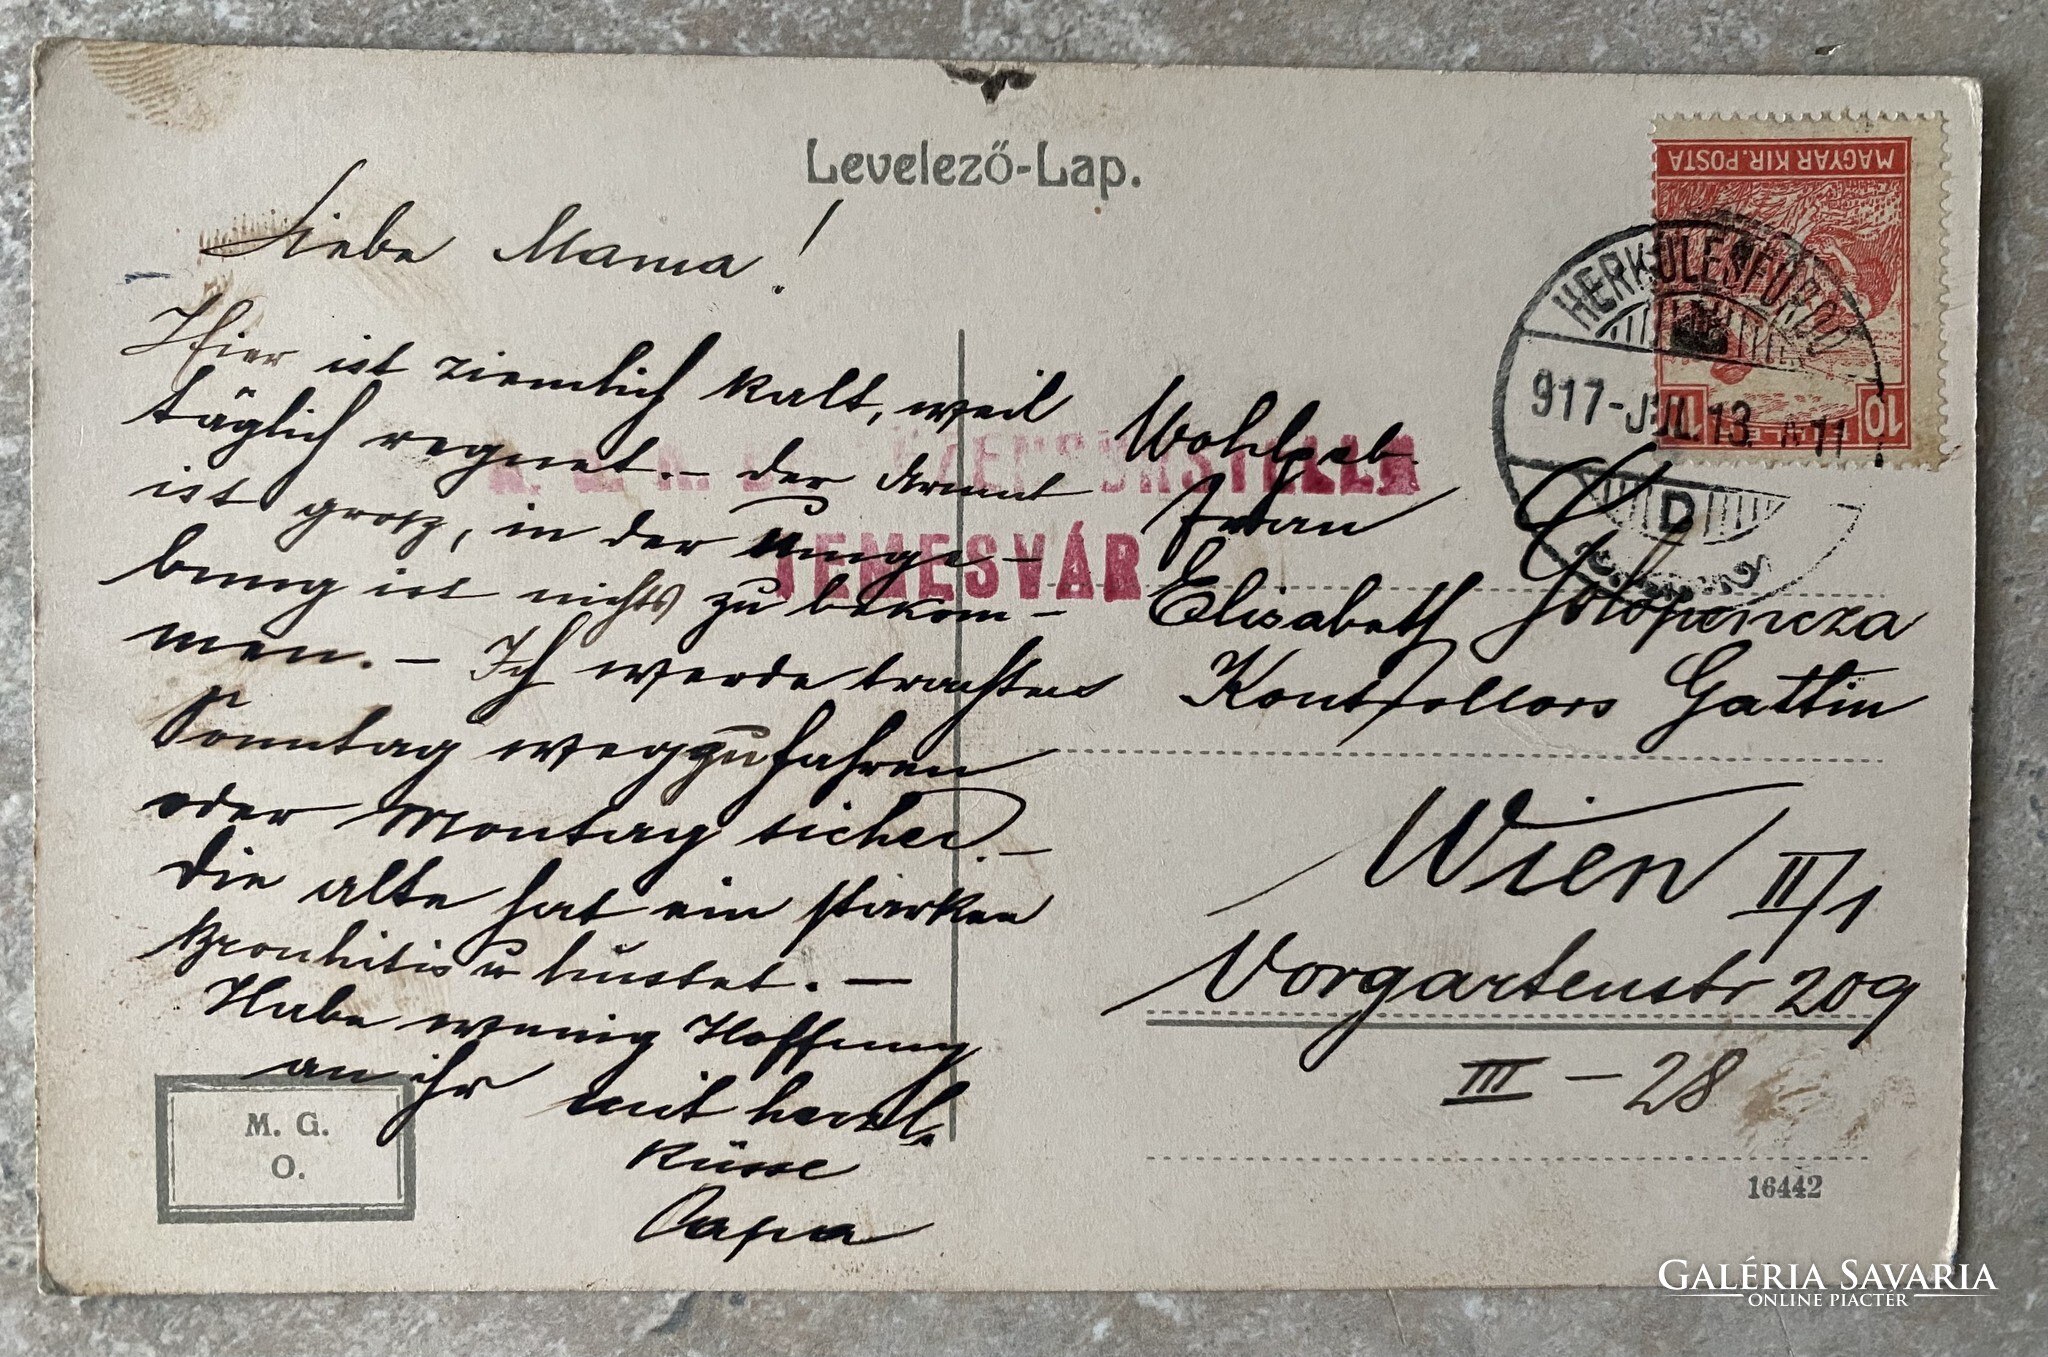 Levelező-Lap.
MAGYAR KIR. POSTA
10
HERKULESFÜRDŐ
917-JUL. 13. A 11
D
Liebe Mama!
Hier ist ziemlich kalt, weil
täglich regnet. – der Armut
ist grosz, in der Umge-
bung ist nichts zu bekom-
men. – Ich werde trachten
Sonntag wegzufahren
oder Montag sicher. –
die alte hat ein starken
Bronhitis u hustet. –
Habe wenig Hoffnung
an ihr mit herzl.
Küsse
Papa
ZENSURSTELLE
TEMESVÁR
Wohlgeb.
Frau
Elisabeth Golopencza
Kontrollors Gattin
Wien II/1
Vorgartenstr 209
III – 28
M. G.
O.
16442
GALÉRIA SAVARIA
ONLINE PIACTÉR